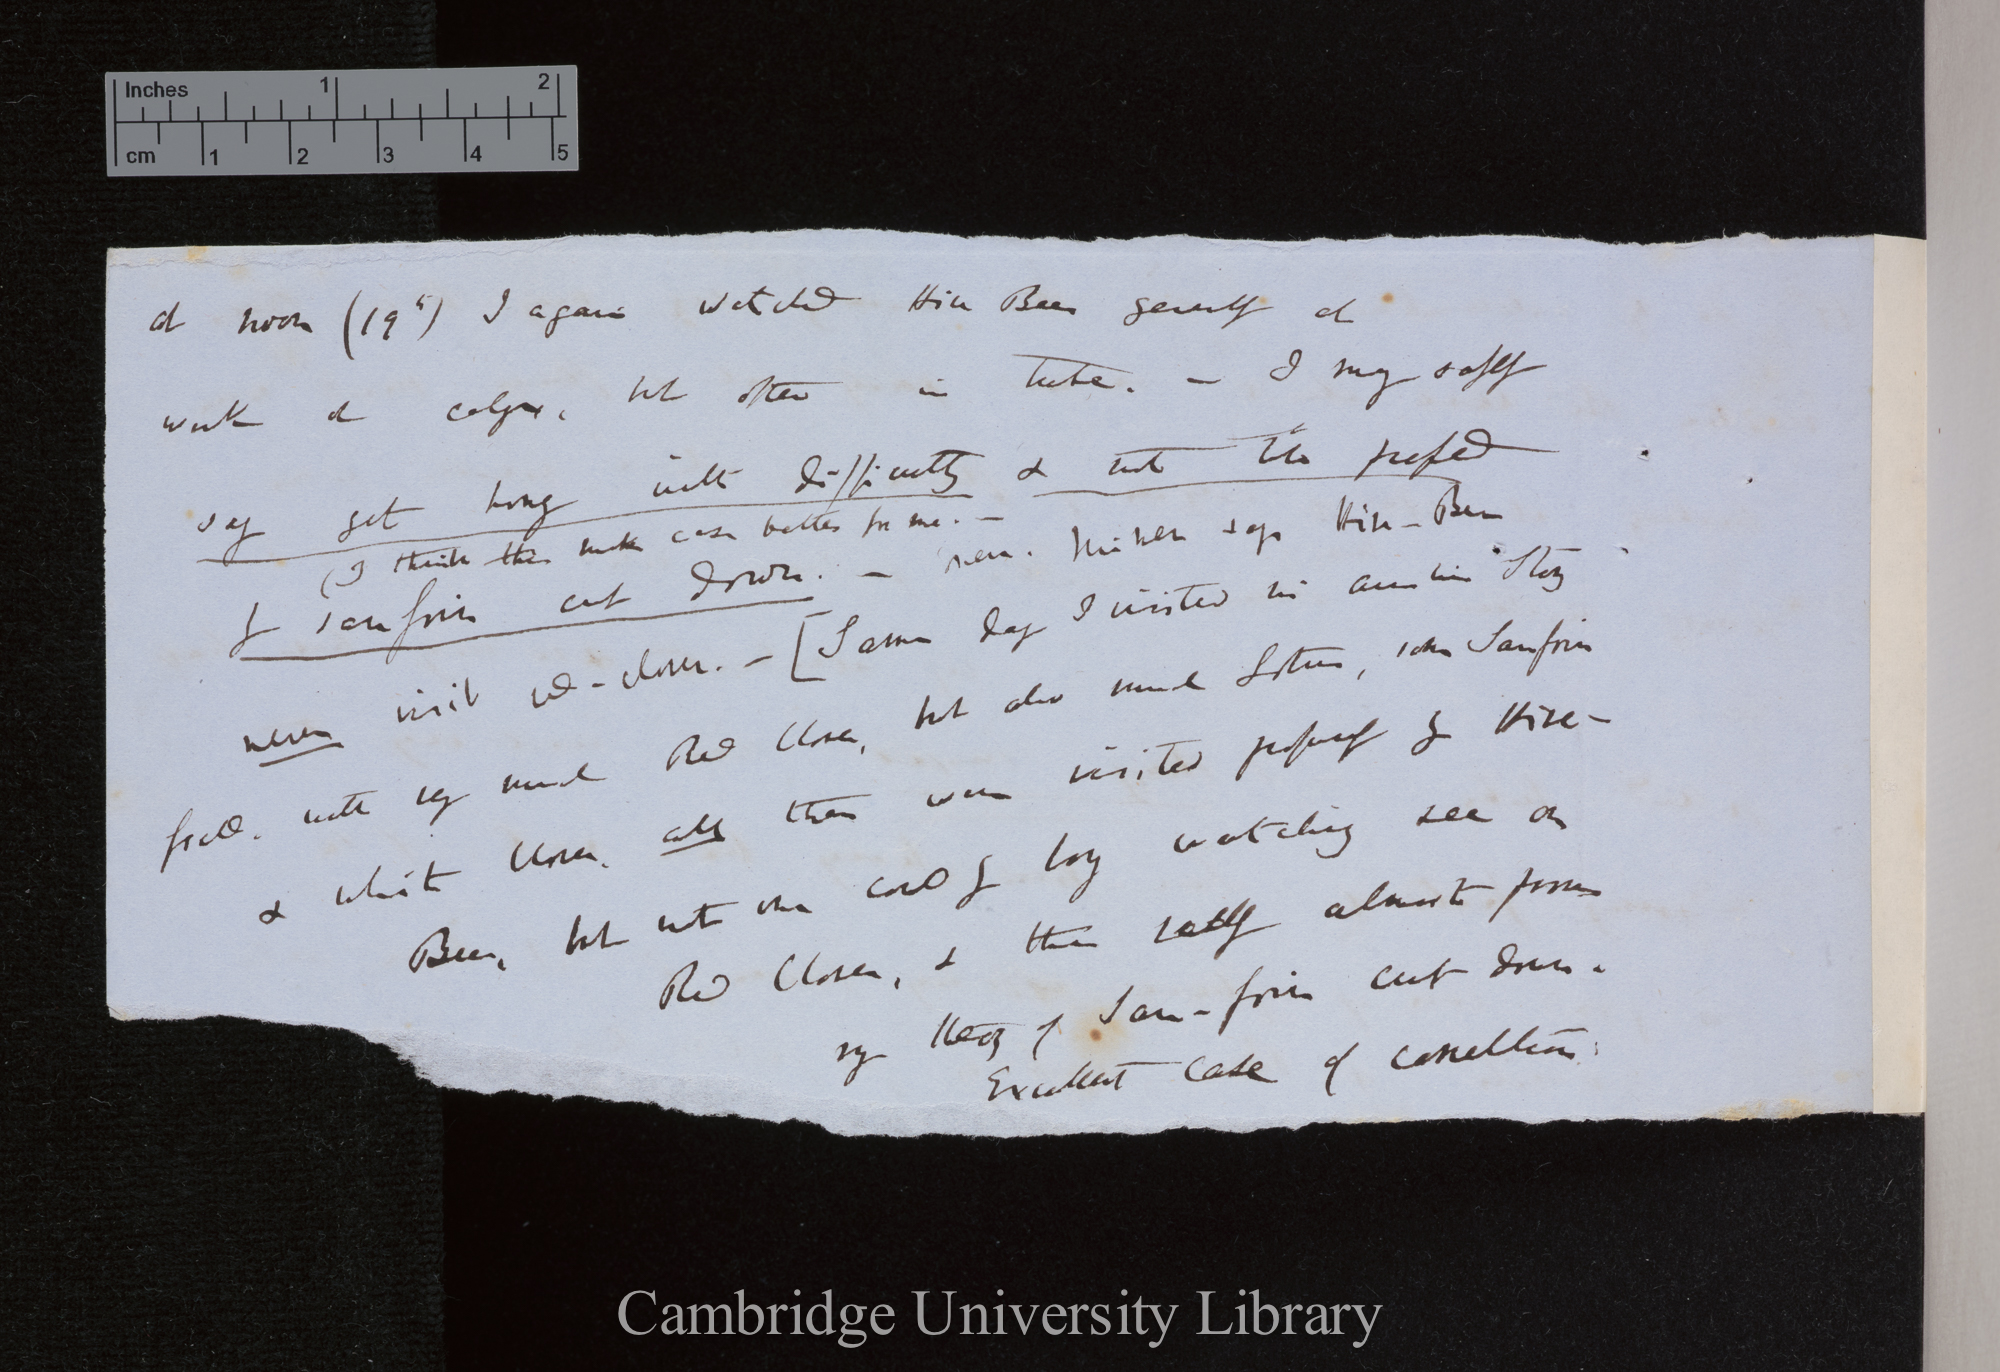 Inches 1 2
cm 1 2 3 4 5
at noon (19th) I again watched Hive Bees generally at
work at calyx, but often in tube. — I may safely
say get honey with difficulty & not the
(I think this makes case better for me. —
of sanfoin cut down. — Hive-Bees
never visit red-clover. — [Same day I visited in
field. with very much Red Clover, but also much Lotus, some Sanfoin
& white Clover. all these were visited profusely by Hive-
Bees, but not one could I by watching see on
Red Clover, & these safely almost
of San-foin cut down.
Excellent case of correlation.
Cambridge University Library